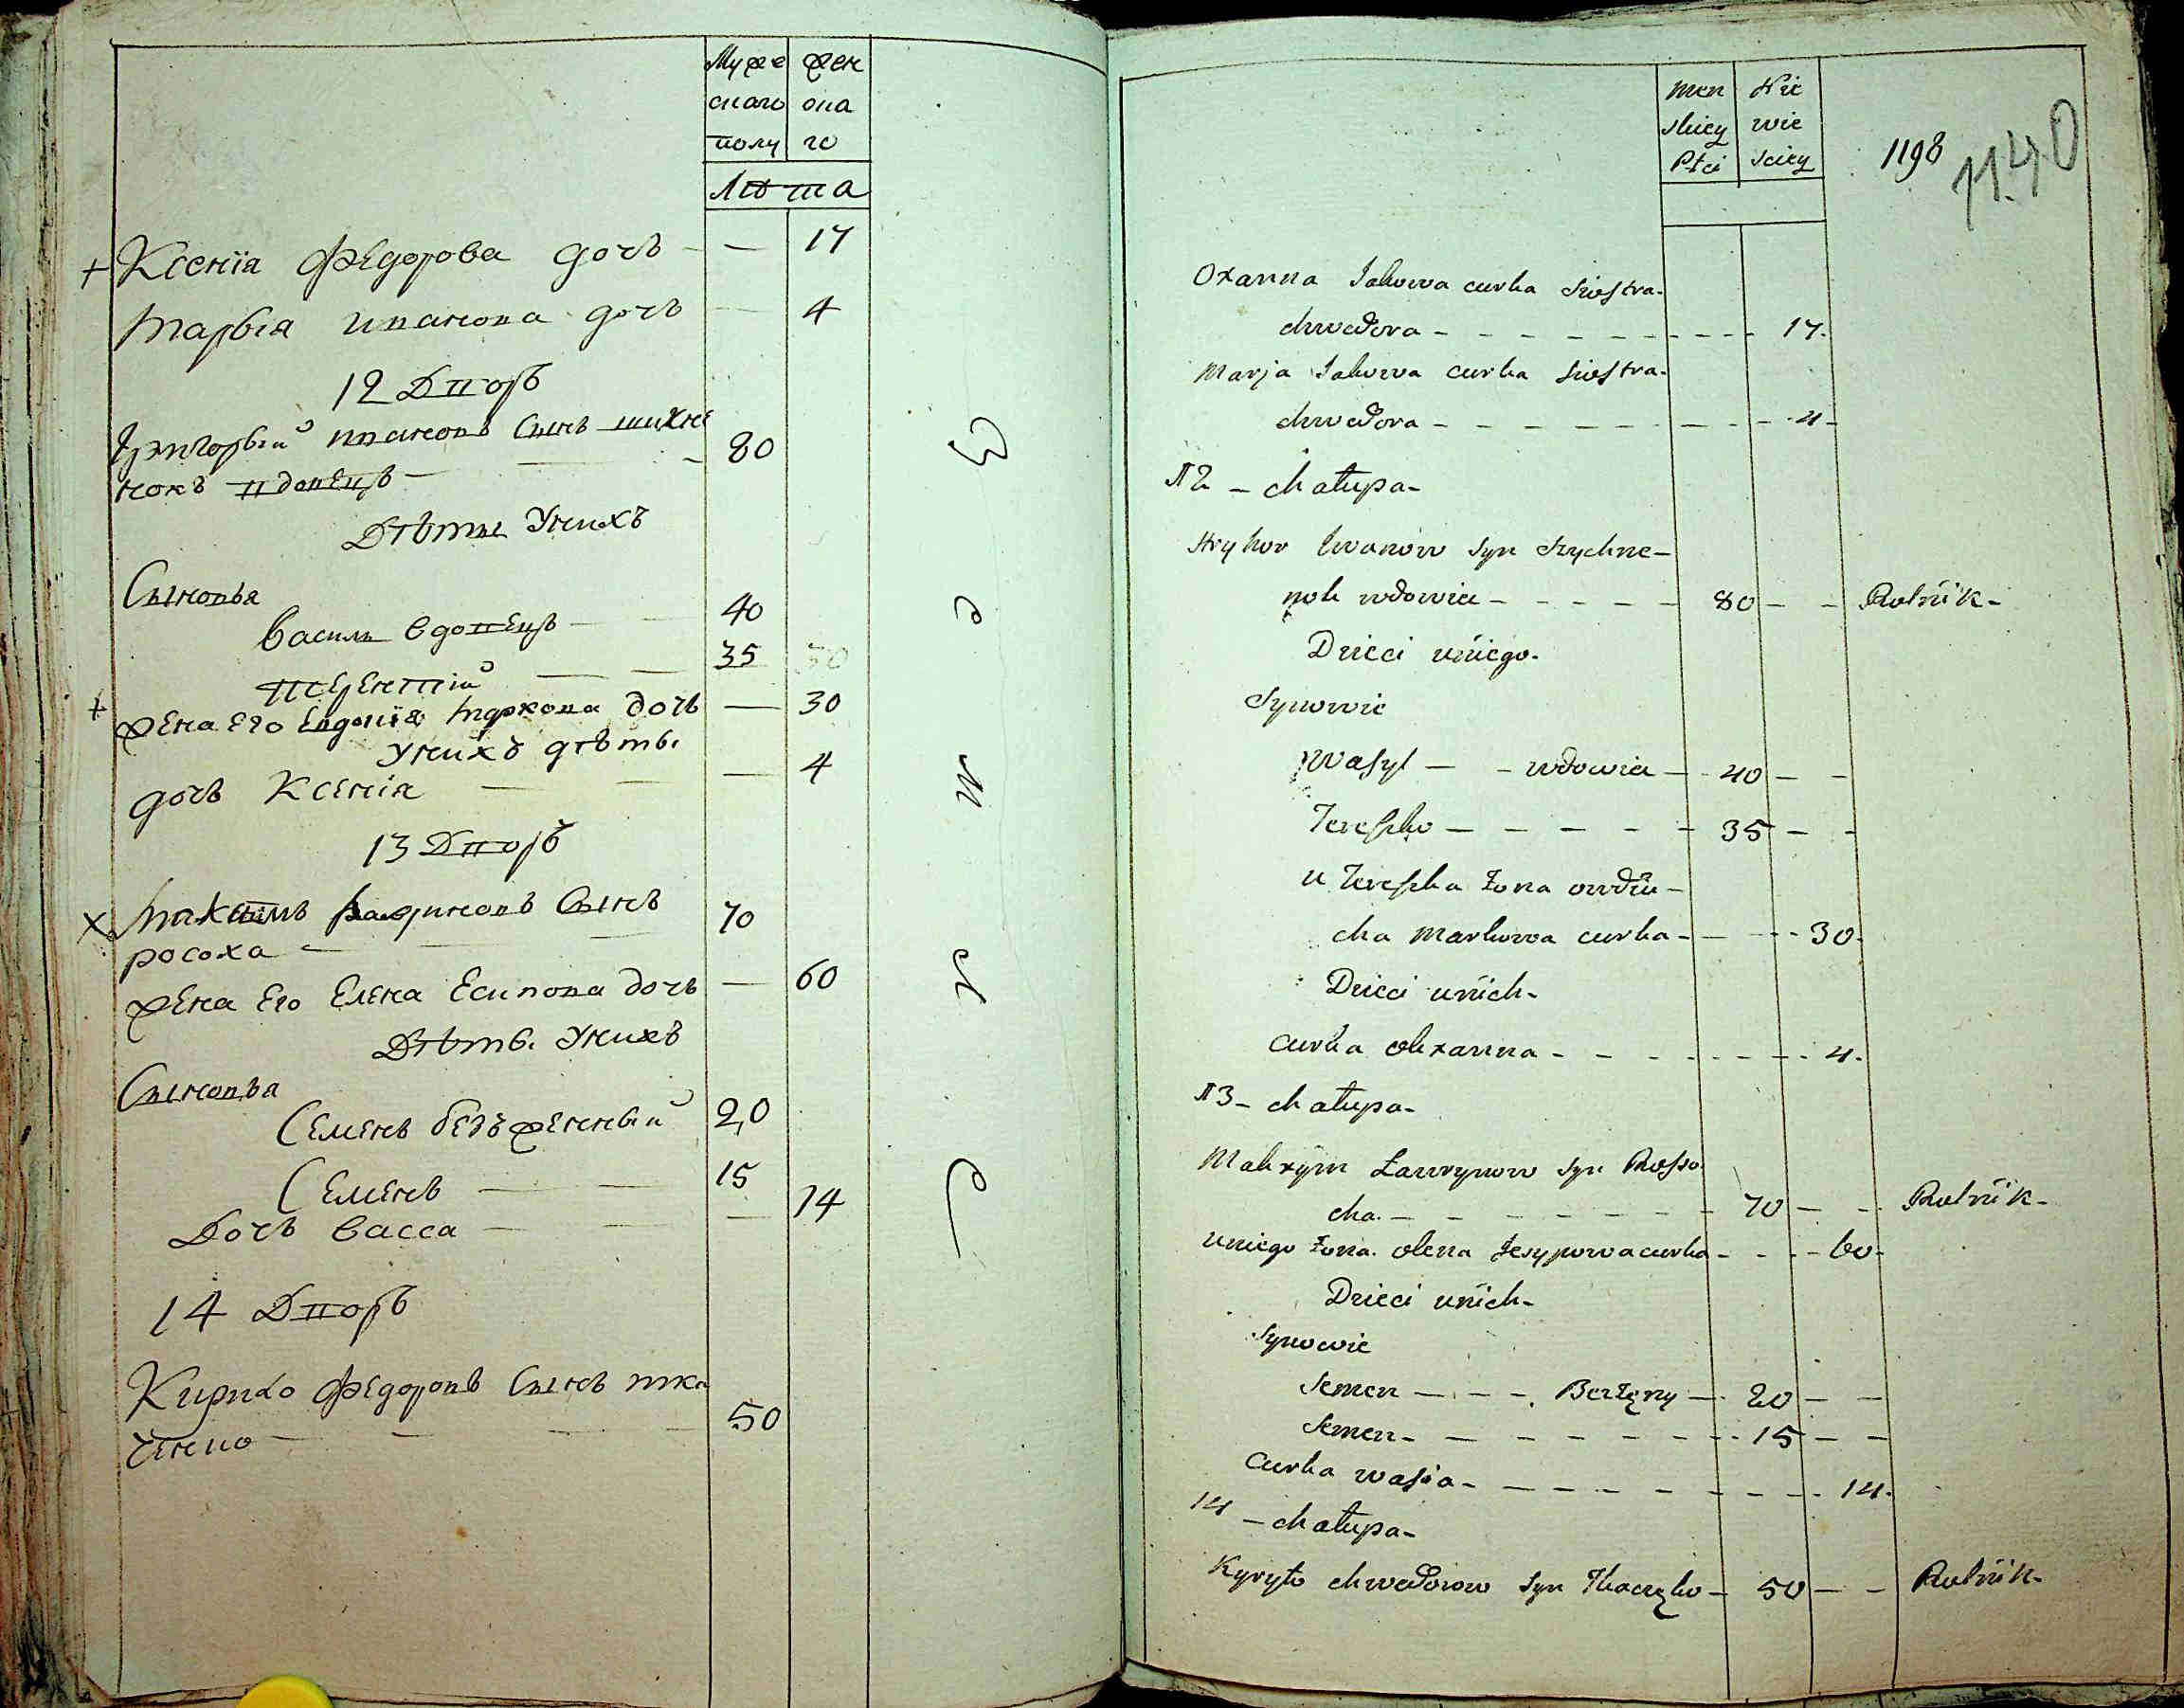 Муже жен
скаго ска
полу го
Лѣта
+ Ксенїя Федорова дочь — — 17
Марья иванова дочь — 4
12 Дворъ
Григорьей ивановъ сынъ шихне
нокъ вдовецъ — — 80
Дѣты Унихъ
Сыновья
Василь вдовецъ — 40
Терентій — — 35 30
+ жена его Евдокїя Маркова дочь — 30
Унихъ дѣти
дочь Ксенія — — — 4
13 Дворъ
× Максимъ лавриновъ Сынъ
росоха — — — 70
жена Его Елена Есипова дочь — 60
Дѣти Унихъ
Сыновья
Семенъ безъженный 20
Семенъ — — 15
Дочь Васса — — — 14
14 Дворъ
Кирило Федоровъ Сынъ тка
ченко — — — — 50
З
е
м
л
men Nie
skiey wie
Płci sciey
1198
1140
Oxanna Jakowa curka siostra
chwedora — — — 17.
Marja Jakowa curka siostra
chwedora — — — 4
12 — chałupa
Hryhor Iwanow syn Szychne-
nok wdowiec — — — 80 — — Rolnik
Dzieci uniego
Synowie
Wasyl — — wdowiec — 40 — —
Tereszko — — — 35 — —
u Tereszka żona owdiu-
cha Markowa curka — — 30
Dzieci unich
curka oksanna — — — 4
13 — chałupa
Maksym Ławrynow syn Rosso
cha — — — 70 — — Rolnik
uniego żona olena Jesypowa curka — — 60
Dzieci unich
Synowie
Semen — — — Bezżeny — 20 — —
Semen — — — 15 — —
Curka wasia — — — 14
14 — chałupa
Kyryło chwedorow syn Tkaczenko — 50 — — Rolnik